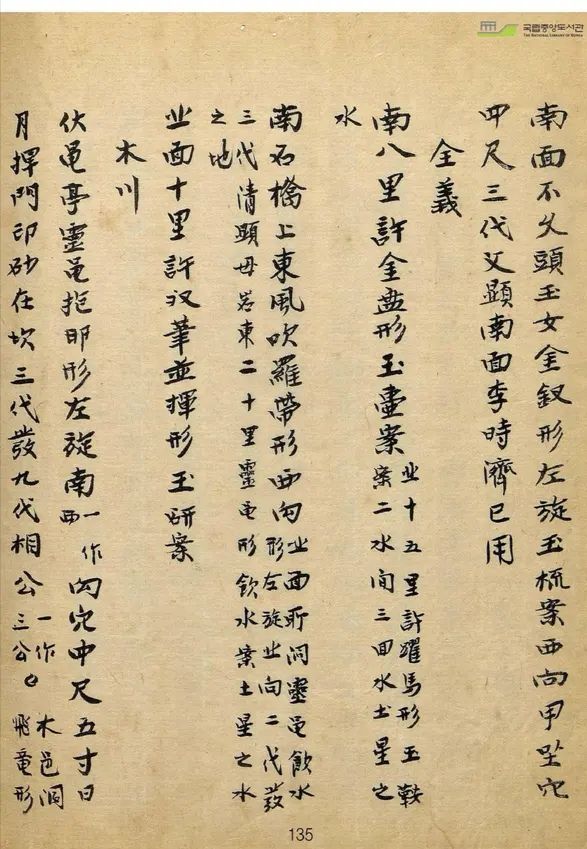 국립중앙도서관
THE NATIONAL LIBRARY OF KOREA
南面不父頭玉女金釵形左旋玉梳案西向甲坐穴
四尺三代父顯南面李時濟已用
全義
南八里許金盎形玉壺案
北十五里許躍馬形玉鞍
案二水間三回水土星之
水
南石橋上東風吹羅帶形西向
北面聊洞靈黾飲水
形左旋北向二代發
三代清顯母岩東二十里靈黾形飮水案土星之水
之地
北面十里許双筆並揮形玉硏案
木川
伏黾亭靈黾抱卵形左旋南
一作
西
内穴中尺五寸日
月捍門印砂在坎三代發九代相公
一作
三公
木邑洞
飛竜形
135